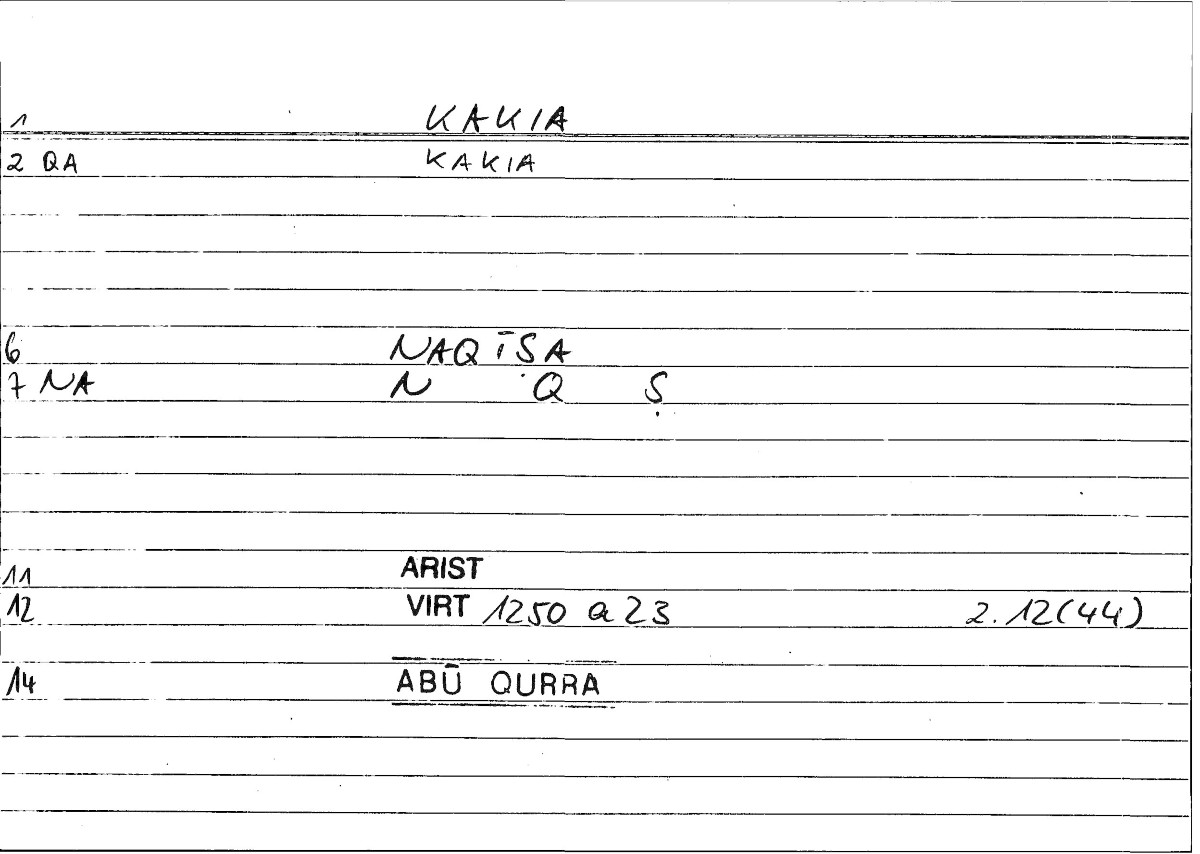 1 KAKIA
2 QA KAKIA
6 NAQĪSA
7 NA N Q Ṣ
11 ARIST
12 VIRT 1250 a 23 2.12(44)
14 ABŪ QURRA